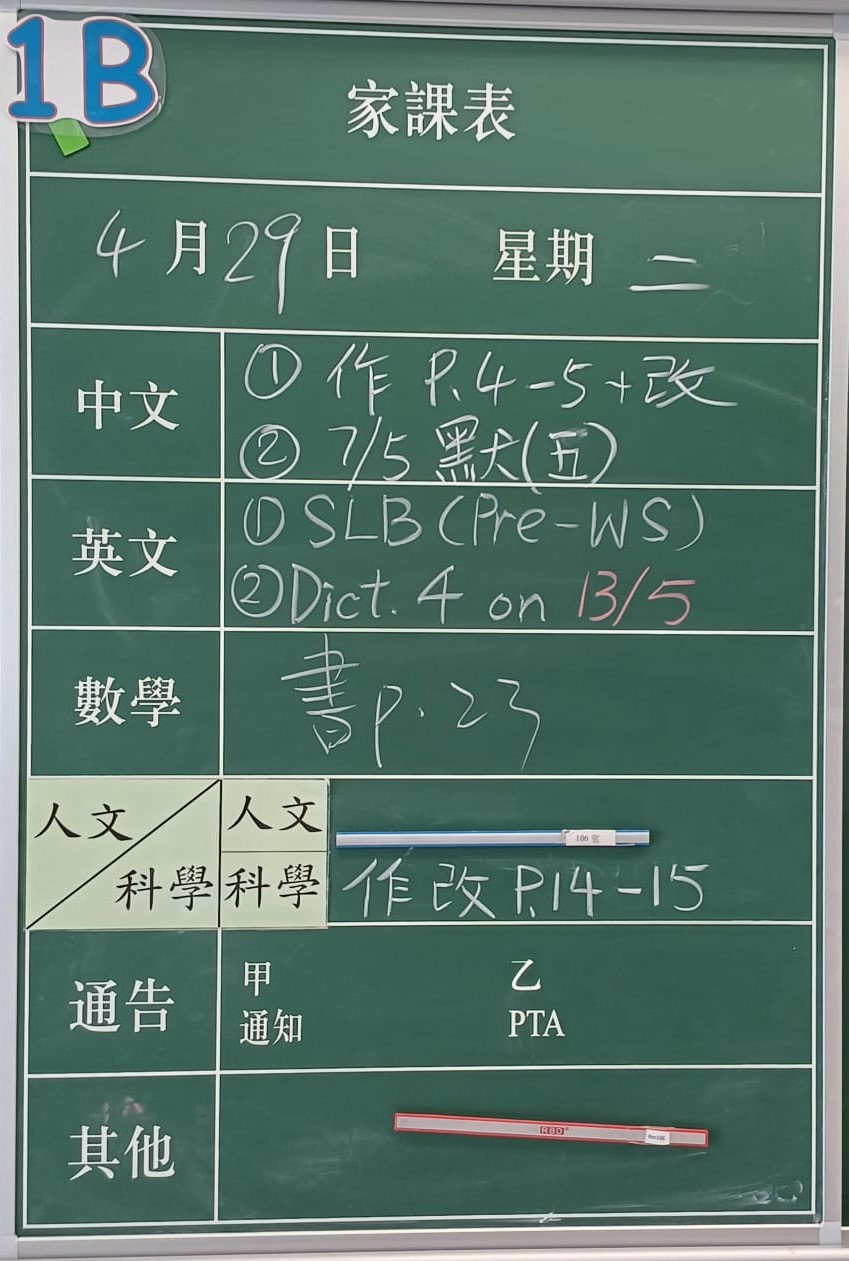 1B
家課表
4月29日 星期二
中文
① 作 P.4-5+改
② 7/5 默(五)
英文
① SLB (Pre-WS)
② Dict. 4 on 13/5
數學
書P.23
人文
科學
人文
106室
科學
作改 P.14-15
通告
甲
乙
通知
PTA
其他
RBD